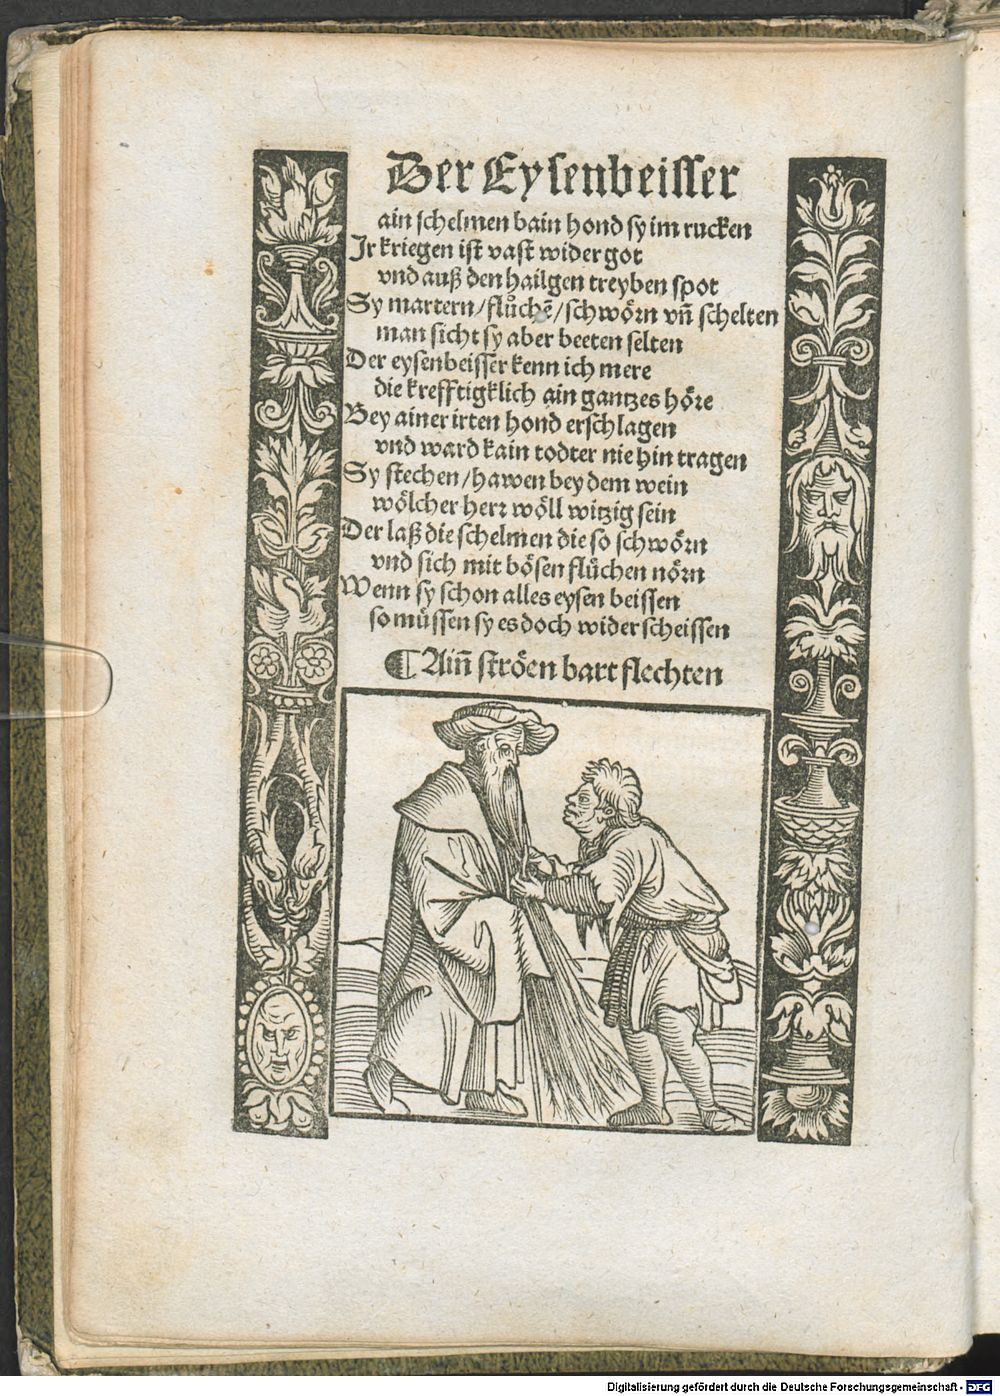 Der Eysenbeisser
ain schelmen bain hond sy im rucken
Ir kriegen ist vast wider got
vnd auß den hailgen treyben spot
Sy martern/flůchẽ/schwoͤrn vñ schelten
man sicht sy aber beeten selten
Der eysenbeisser kenn ich mere
die krefftigklich ain gantzes hoͤre
Bey ainer irten hond erschlagen
vnd ward kain todter nie hin tragen
Sy stechen/hawen bey dem wein
woͤlcher herr woͤll witzig sein
Der laß die schelmen die so schwoͤrn
vnd sich mit boͤsen fluͤchen noͤrn
Wenn sy schon alles eysen beissen
so muͤssen sy es doch wider scheissen
¶ Ainñ stroͤen bart flechten
Digitalisierung gefördert durch die Deutsche Forschungsgemeinschaft - DFG